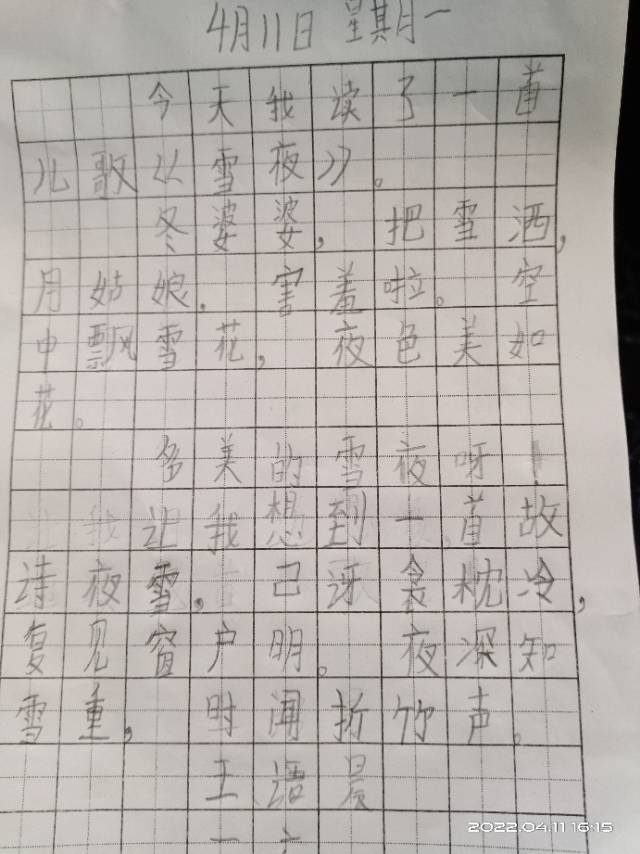 4月11日 星期一
今天我读了一首
儿歌《雪夜》。
冬婆婆，把雪洒，
月姑娘，害羞啦。空
中飘雪花，夜色美如
花。
多美的雪夜呀！
让我想到一首故
诗夜雪，己讶衾枕冷，
复见窗户明。夜深知
雪重，时闻折竹声。
王语晨
2022.04.11 16:15